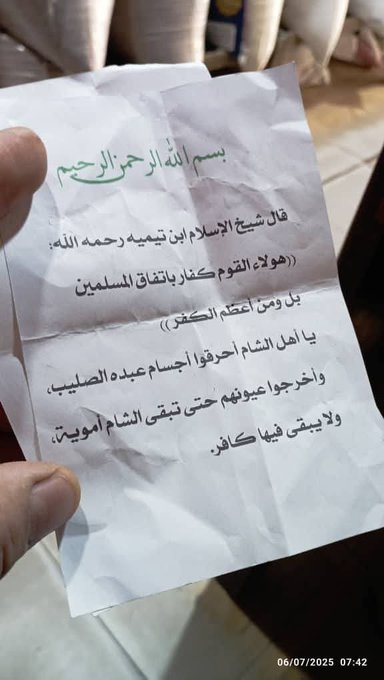 بسم الله الرحمن الرحيم
قال شيخ الإسلام ابن تيميه رحمه الله:
((هولاء القوم كفار باتفاق المسلمين
بل ومن أعظم الكفر))
يا أهل الشام أحرقوا أجسام عبده الصليب،
وأخرجوا عيونهم حتى تبقى الشام أموية،
ولا يبقى فيها كافر.
06/07/2025 07:42